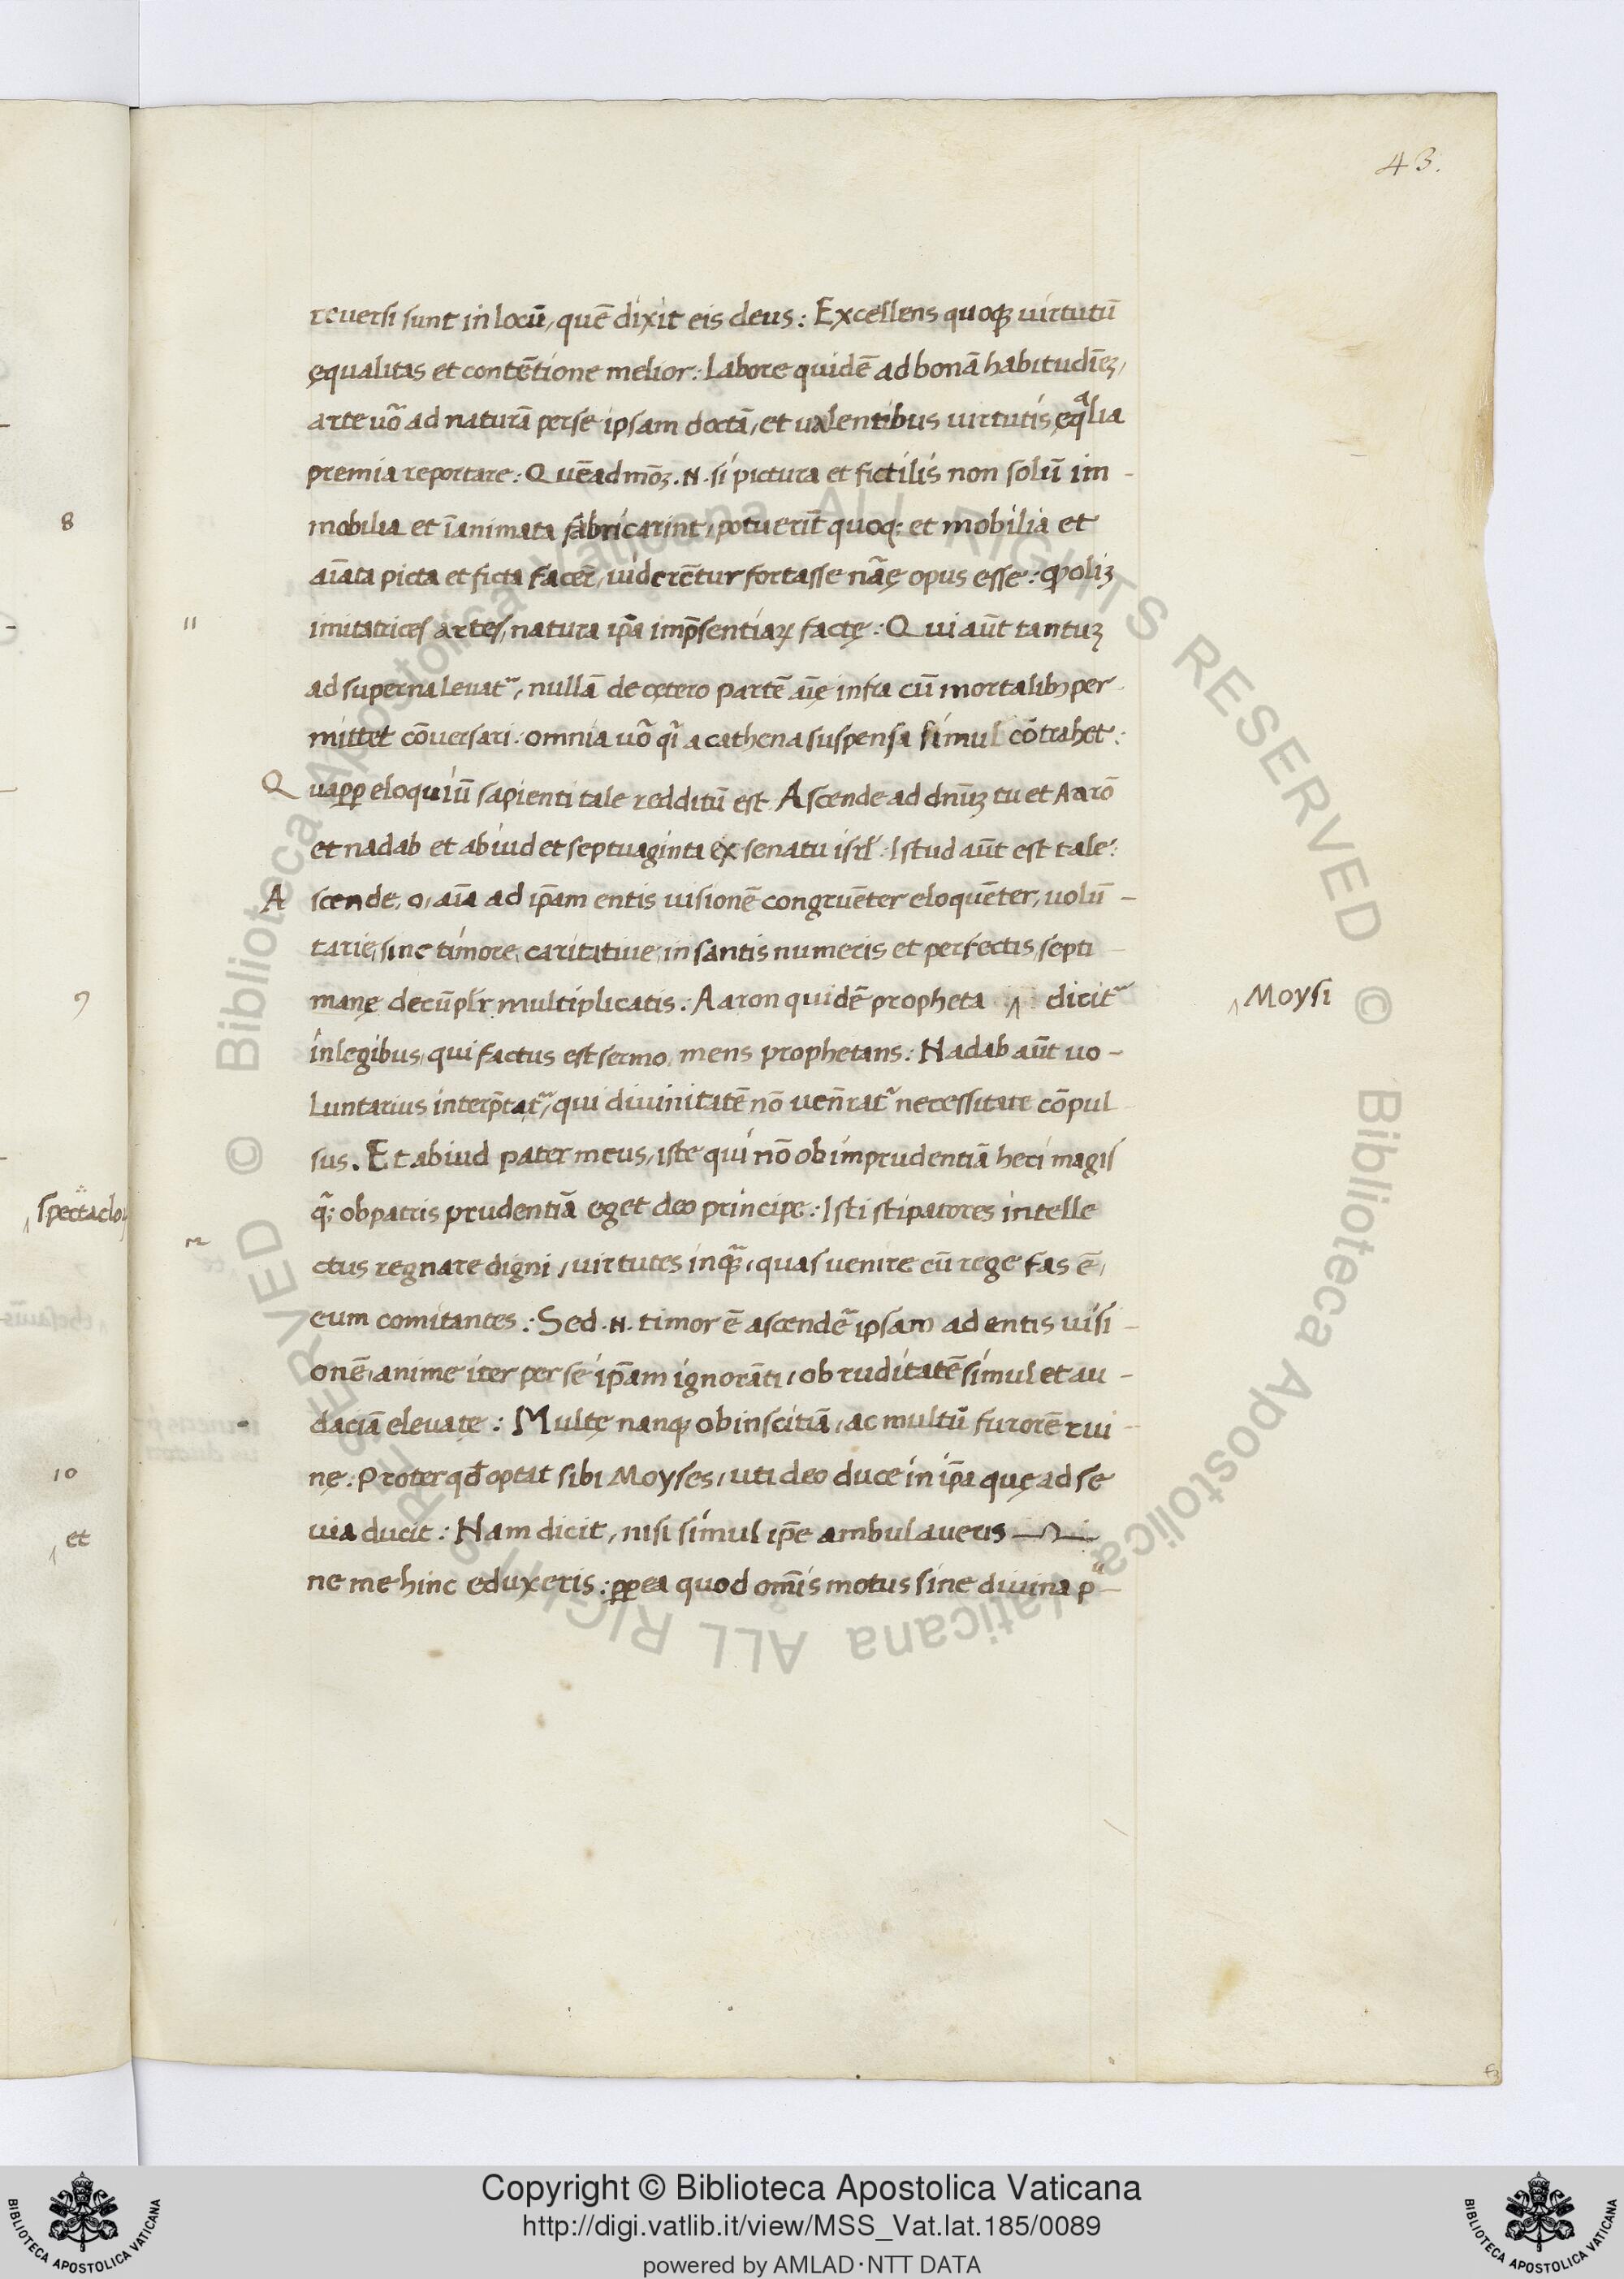 43.
reuersi sunt in locū, quē dixit eis deus: Excellens quoqꝫ uirtutū
ęqualitas et contētione melior: Labore quidē ad bonā habitudīeꝫ,
arte uõ ad naturā perse ipsam doctā, et ualentibus uirtutis ęqᵃlia
premia reportare: Quēadmōꝫ .N. si pictura et fictilis non solū im-
mobilia et īanimata fabricarint, potuerīt quoqꝫ et mobilia et
aīata picta et ficta facer̄, uiderētur fortasse nāę opus esse: qꝫ oliꝫ
imitatrices artes, natura ip̄a imp̄sentiaꝝ factę: Qui aūt tantuꝫ
11
ad superna leuatʳ, nullā de cętero partē aīę infra cū mortalibꝫ per-
mittet cōuersari: omnia uõ qͥ a cathena suspensa simul cōtrahet:
Quaꝓꝑ eloquiū sapienti tale redditū est Ascende ad dnūꝫ tu et Aarō
et nadab et abiud et septuaginta ex senatu isrl̄: Istud aūt est tale:
Ascende, o, aīa ad ip̄am entis uisionē congruēter eloquēter, uolū-
tarie, sine timore, caritatiue, in santis numeris et perfectis, septi-
manę decūpl̄r multiplicatis. Aaron quidē propheta ^ dicitʳ
^ Moysi
in legibus, qui factus est sermo, mens prophetans: Nadab aūt uo-
luntarius interp̄tatʳ, qui diuinitatē nō uen̄ratʳ necessitate cōpul
sus. Et abiud pater meus, iste qui nō ob imprudentiā heri magis
qͣꝫ ob patris prudentiā eget deo principe: Isti stipatores intelle
ctus regnare digni, uirtutes inqͣꝫ, quas uenire cū rege fas ē,
eum comitantes: Sed .N. timor ē ascendē ipsam ad entis uisi-
onē, anime iter per se ip̄am ignorāti, ob ruditatē simul et au-
daciā eleuatę: Multę nanqꝫ ob inscitiā, ac multū furorē rui-
nę: Proter qđ optat sibi Moyses, uti deo duce in ip̄a quę ad se
uia ducit: Nam dicit, nisi simul ip̄e ambulaueris
ne me hinc eduxeris: ꝓꝑea quod om̄is motus sine diuina p-
8
9
^ spectaclo
10
^ et
Biblioteca Apostolica Vaticana ALL RIGHTS RESERVED ©
Biblioteca Apostolica Vaticana ALL RIGHTS RESERVED ©
BIBLIOTECA APOSTOLICA VATICANA
Copyright © Biblioteca Apostolica Vaticana
http://digi.vatlib.it/view/MSS_Vat.lat.185/0089
powered by AMLAD·NTT DATA
BIBLIOTECA APOSTOLICA VATICANA